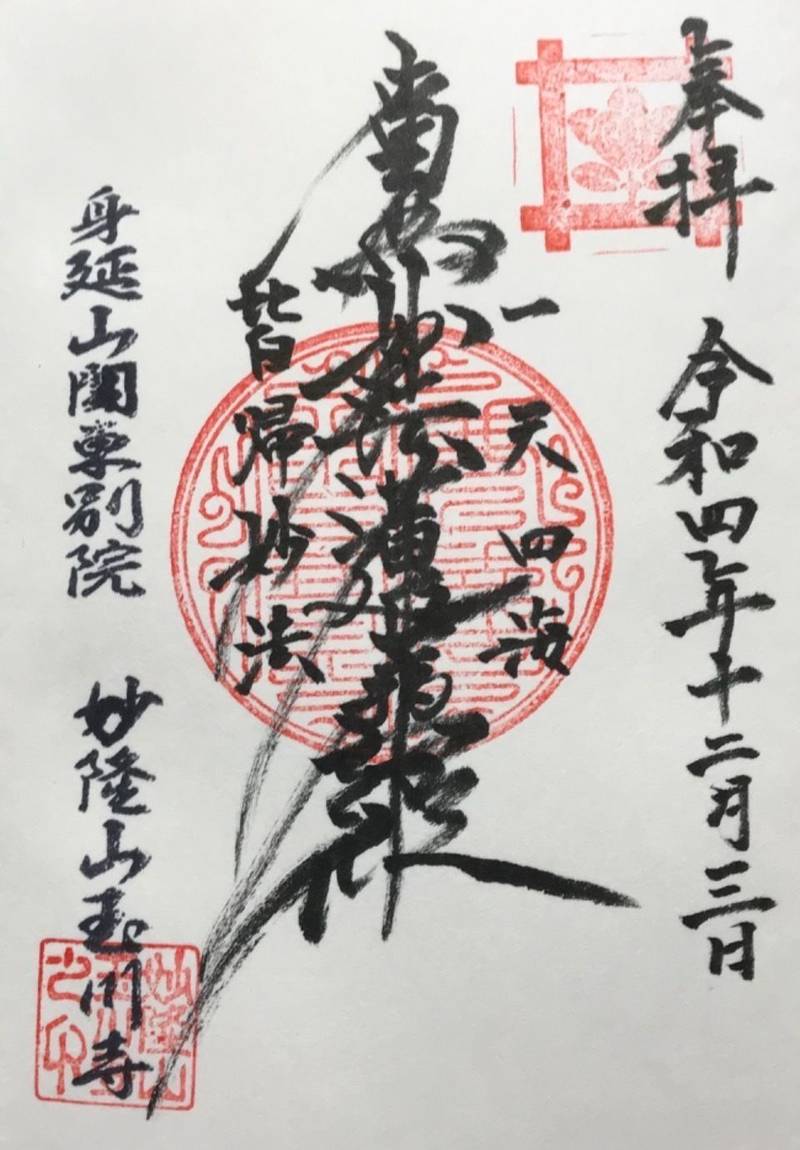 奉拝
令和四年十二月三日
一天四海
南無妙法蓮華経
皆帰妙法
身延山関東別院
妙隆山玉川寺